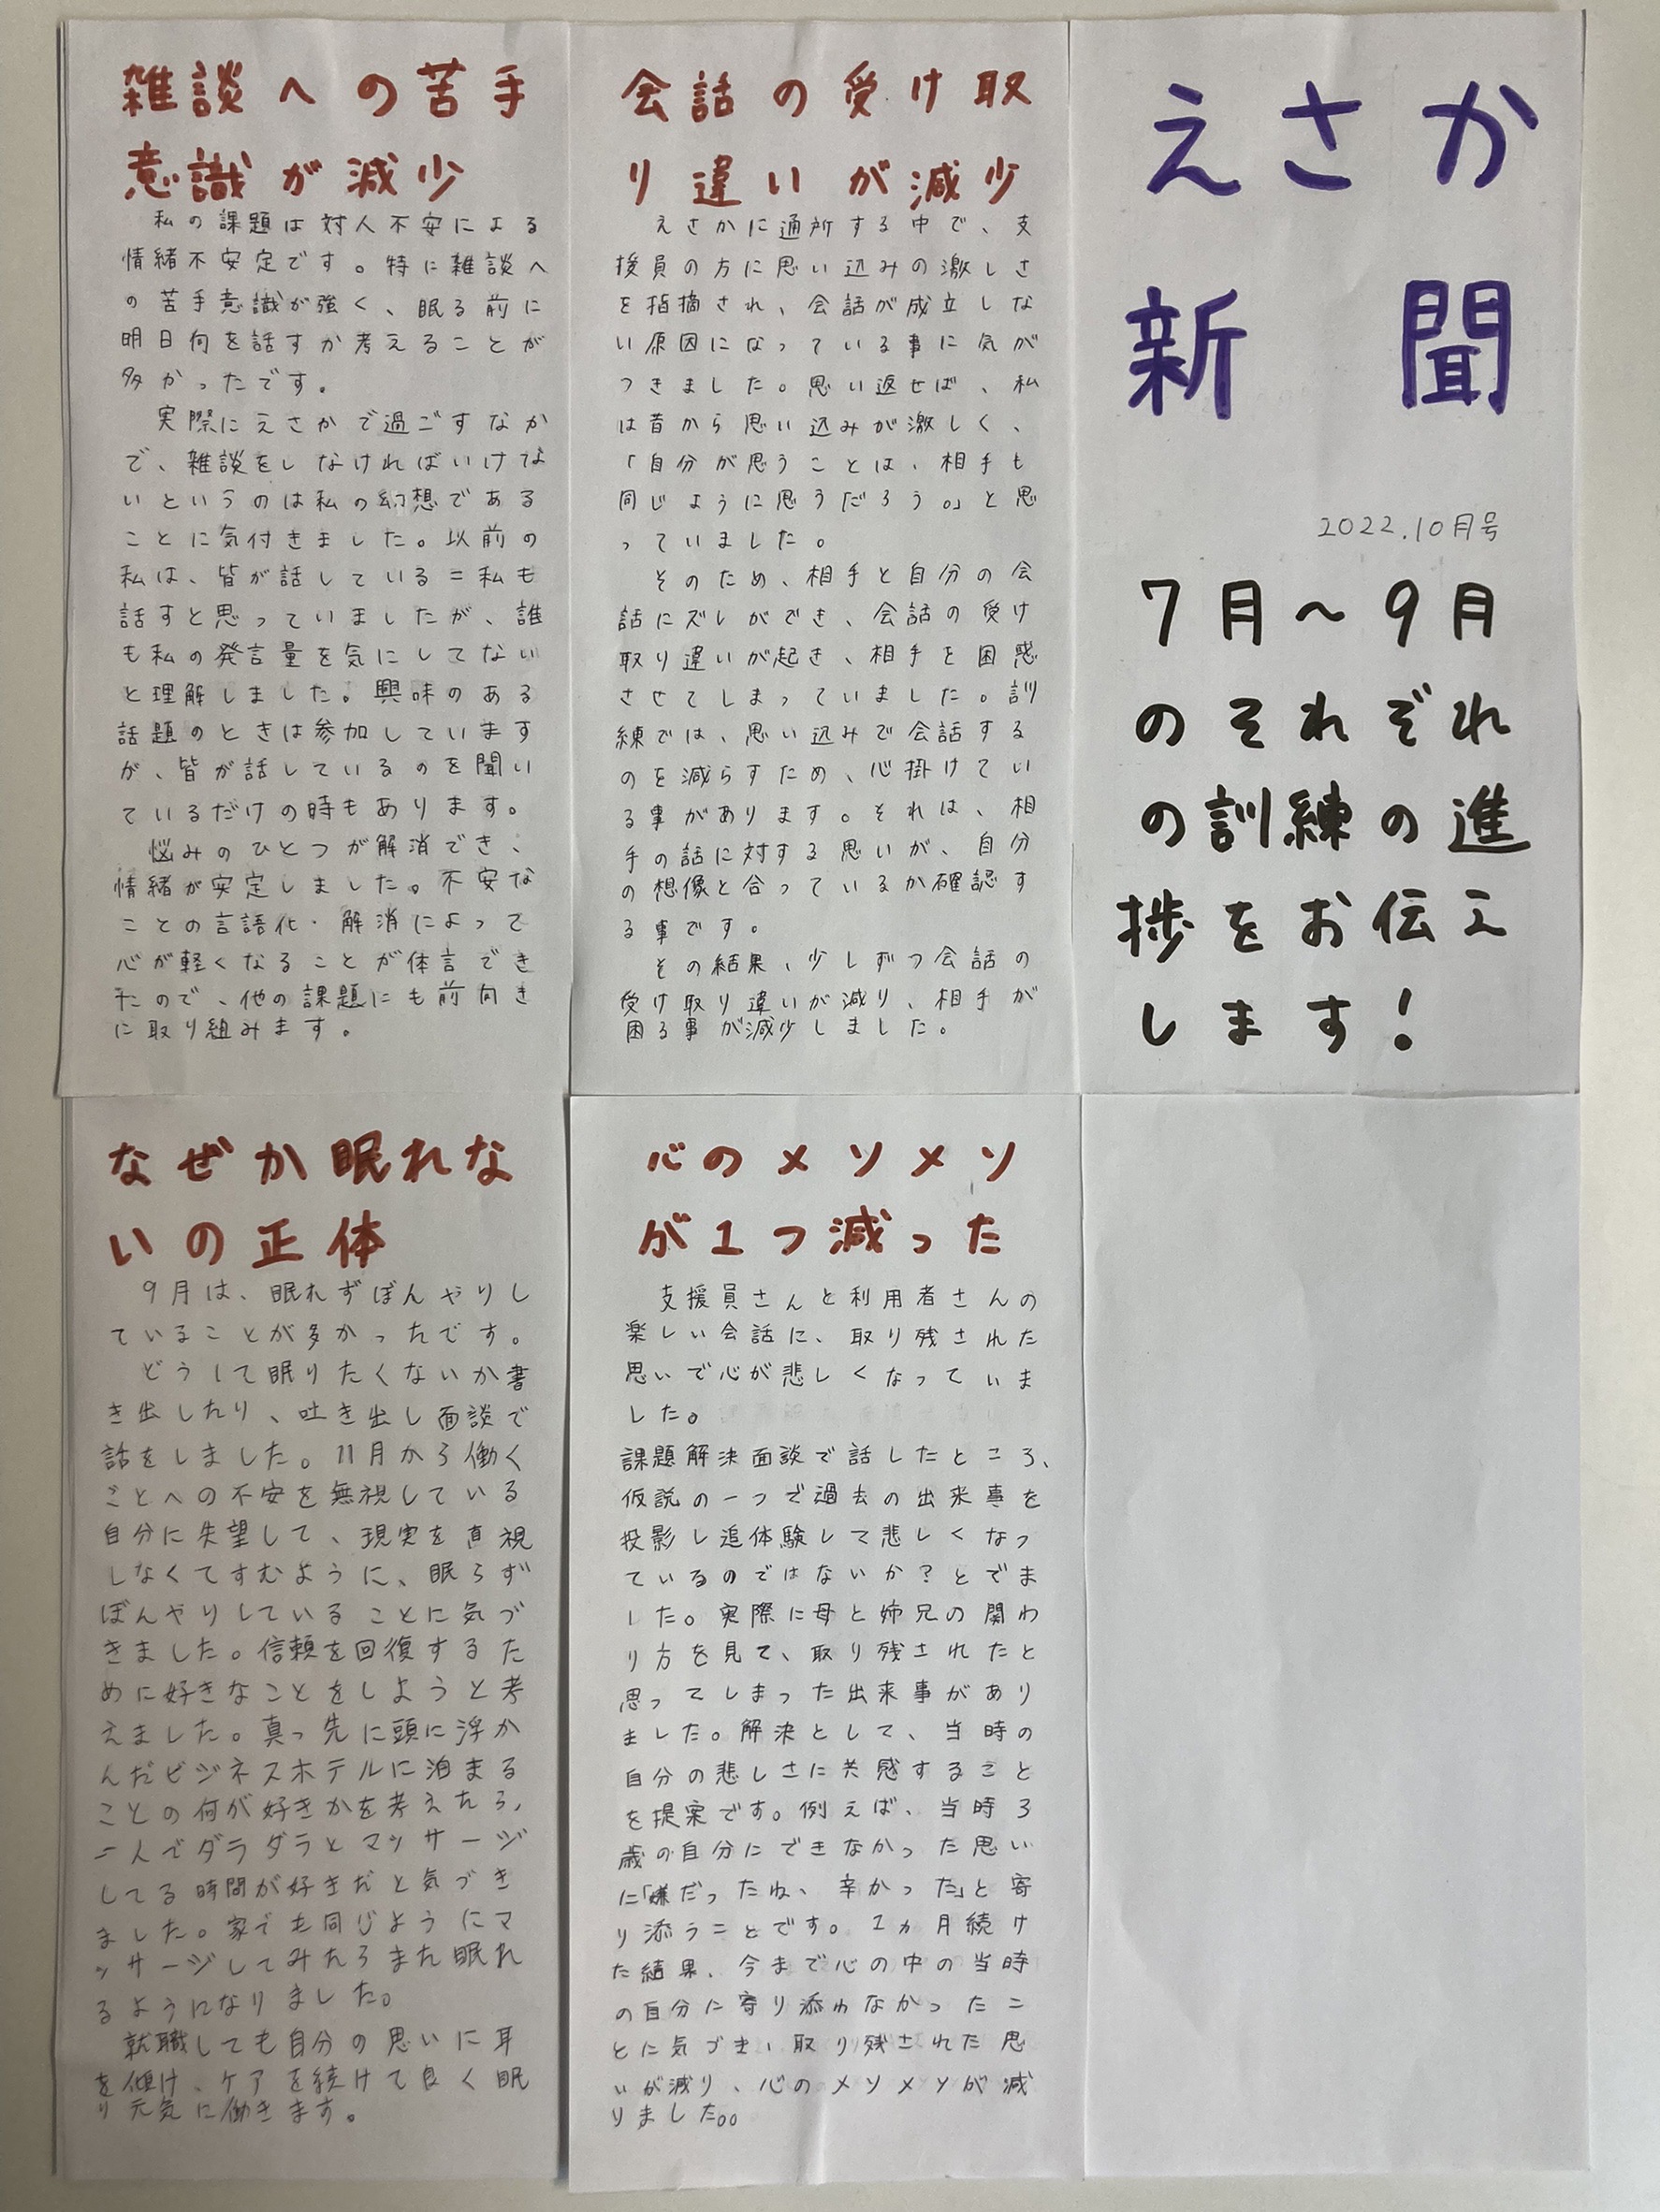 えさか
新聞
2022.10月号
7月〜9月
のそれぞれ
の訓練の進
捗をお伝え
します!
会話の受け取
り違いが減少
えさかに通所する中で、支
援員の方に思い込みの激しさ
を指摘され、会話が成立しな
い原因になっている事に気が
つきました。思い返せば、私
は昔から思い込みが激しく、
「自分が思うことは、相手も
同じように思うだろう。」と思
っていました。
そのため、相手と自分の会
話にズレができ、会話の受け
取り違いが起き、相手を困惑
させてしまっていました。訓
練では、思い込みで会話する
のを減らすため、心掛けてい
る事があります。それは、相
手の話に対する思いが、自分
の想像と合っているか確認す
る事です。
その結果、少しずつ会話の
受け取り違いが減り、相手が
困る事が減少しました。
雑談への苦手
意識が減少
私の課題は対人不安による
情緒不安定です。特に雑談へ
の苦手意識が強く、眠る前に
明日何を話すか考えることが
多かったです。
実際にえさかで過ごすなか
で、雑談をしなければいけな
いというのは私の幻想である
ことに気付きました。以前の
私は、皆が話している=私も
話すと思っていましたが、誰
も私の発言量を気にしてない
と理解しました。興味のある
話題のときは参加しています
が、皆が話しているのを聞い
ているだけの時もあります。
悩みのひとつが解消でき、
情緒が安定しました。不安な
ことの言語化・解消によって
心が軽くなることが体言でき
たので、他の課題にも前向き
に取り組みます。
心のメソメソ
が1つ減った
支援員さんと利用者さんの
楽しい会話に、取り残された
思いで心が悲しくなっていま
した。
課題解決面談で話したところ、
仮説の一つで過去の出来事を
投影し追体験して悲しくなっ
ているのではないか?とでま
した。実際に母と姉兄の関わ
り方を見て、取り残されたと
思ってしまった出来事があり
ました。解決として、当時の
自分の悲しさに共感すること
を提案です。例えば、当時3
歳の自分にできなかった思い
に「嫌だったね、辛かった」と寄
り添うことです。1ヵ月続け
た結果、今まで心の中の当時
の自分に寄り添わなかったこ
とに気づき、取り残された思
いが減り、心のメソメソが減
りました。。
なぜか眠れな
いの正体
9月は、眠れずぼんやりし
ていることが多かったです。
どうして眠りたくないか書
き出したり、吐き出し面談で
話をしました。11月から働く
ことへの不安を無視している
自分に失望して、現実を直視
しなくてすむように、眠らず
ぼんやりしていることに気づ
きました。信頼を回復するた
めに好きなことをしようと考
えました。真っ先に頭に浮か
んだビジネスホテルに泊まる
ことの何が好きかを考えたら、
二人でダラダラとマッサージ
してる時間が好きだと気づき
ました。家でも同じようにマ
ッサージしてみたらまた眠れ
るようになりました。
就職しても自分の思いに耳
を傾け、ケアを続けて良く眠
り元気に働きます。